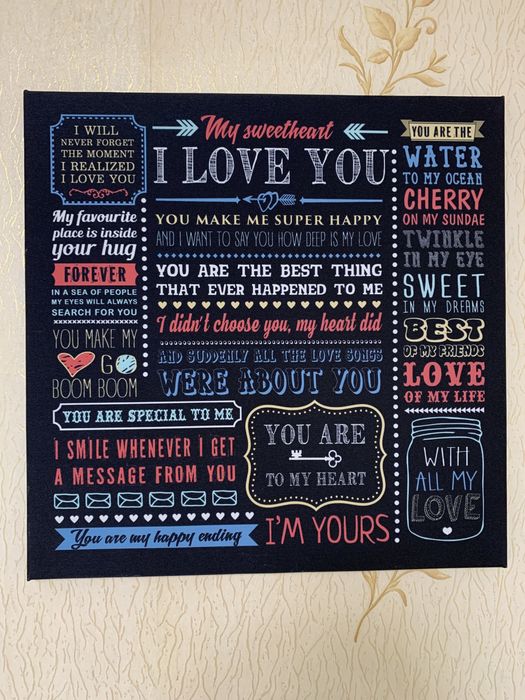 I WILL
NEVER FORGET
THE MOMENT
I REALIZED
I LOVE YOU
My favourite
place is inside
your hug
FOREVER
IN A SEA OF PEOPLE
MY EYES WILL ALWAYS
SEARCH FOR YOU
YOU MAKE MY
GO
BOOM BOOM
My sweetheart
I LOVE YOU
YOU MAKE ME SUPER HAPPY
AND I WANT TO SAY YOU HOW DEEP IS MY LOVE
YOU ARE THE BEST THING
THAT EVER HAPPENED TO ME
I didn't choose you, my heart did
AND SUDDENLY ALL THE LOVE SONGS
WERE ABOUT YOU
YOU ARE SPECIAL TO ME
I SMILE WHENEVER I GET
A MESSAGE FROM YOU
You are my happy ending
YOU ARE
TO MY HEART
I'M YOURS
YOU ARE THE
WATER
TO MY OCEAN
CHERRY
ON MY SUNDAE
TWINKLE
IN MY EYE
SWEET
IN MY DREAMS
BEST
OF MY FRIENDS
LOVE
OF MY LIFE
WITH
ALL MY
LOVE